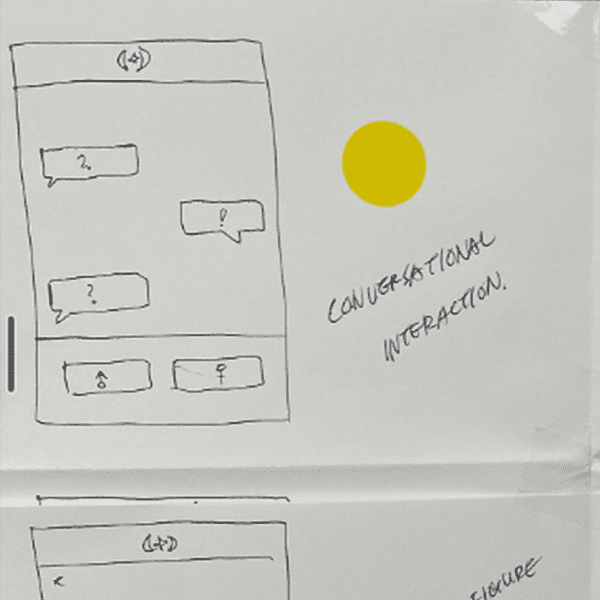 (+)
?
!
?
CONVERSATIONAL
INTERACTION.
(+)
<
FIGURE